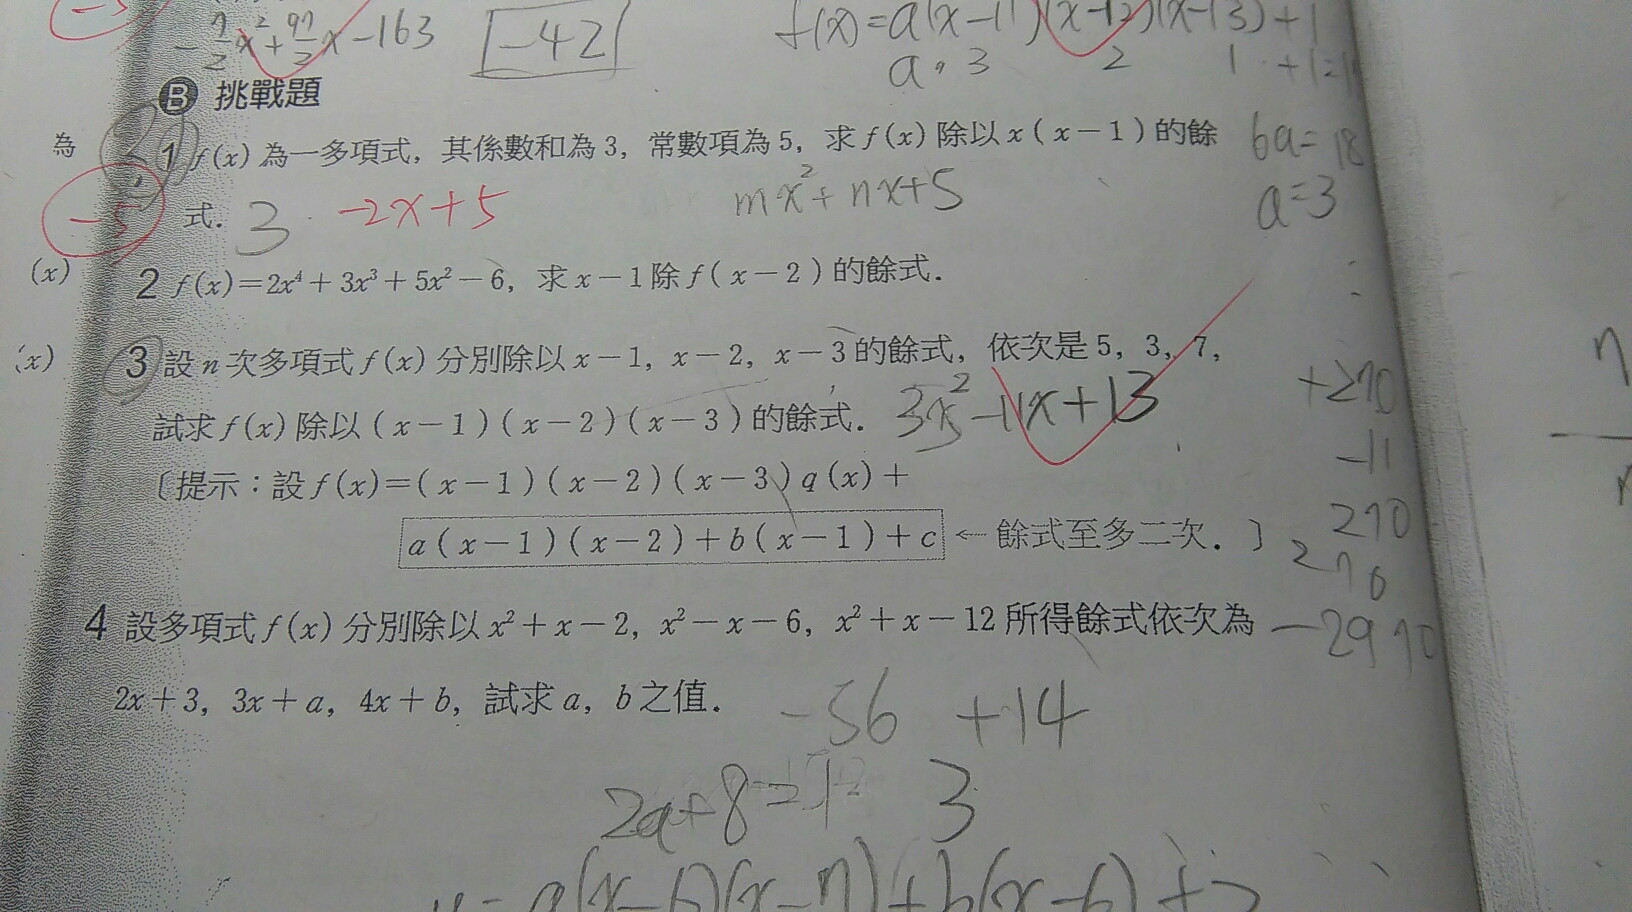 -7/2x²+97/2x-163
-42
f(x)=a(x-11)(x-12)(x-13)+1
a·3 2 1 +1=1
B 挑戰題
為
1 f(x)為一多項式，其係數和為3，常數項為5，求f(x)除以x(x-1)的餘
式．
3
-2x+5
mx²+nx+5
6a=18
a=3
-5
(x)
2 f(x)=2x⁴+3x³+5x²-6，求x-1除f(x-2)的餘式．
(x)
3 設n次多項式f(x)分別除以x-1，x-2，x-3的餘式，依次是5，3，7，
試求f(x)除以(x-1)(x-2)(x-3)的餘式．
3x²-11x+13
〔提示：設f(x)=(x-1)(x-2)(x-3)q(x)+
a(x-1)(x-2)+b(x-1)+c ← 餘式至多二次．〕
+270
-11
270
276
-2970
4 設多項式f(x)分別除以x²+x-2，x²-x-6，x²+x-12所得餘式依次為
2x+3，3x+a，4x+b，試求a，b之值．
-56 +14
2a+8=
3
a(x-6)(x-7)+b(x-6)+